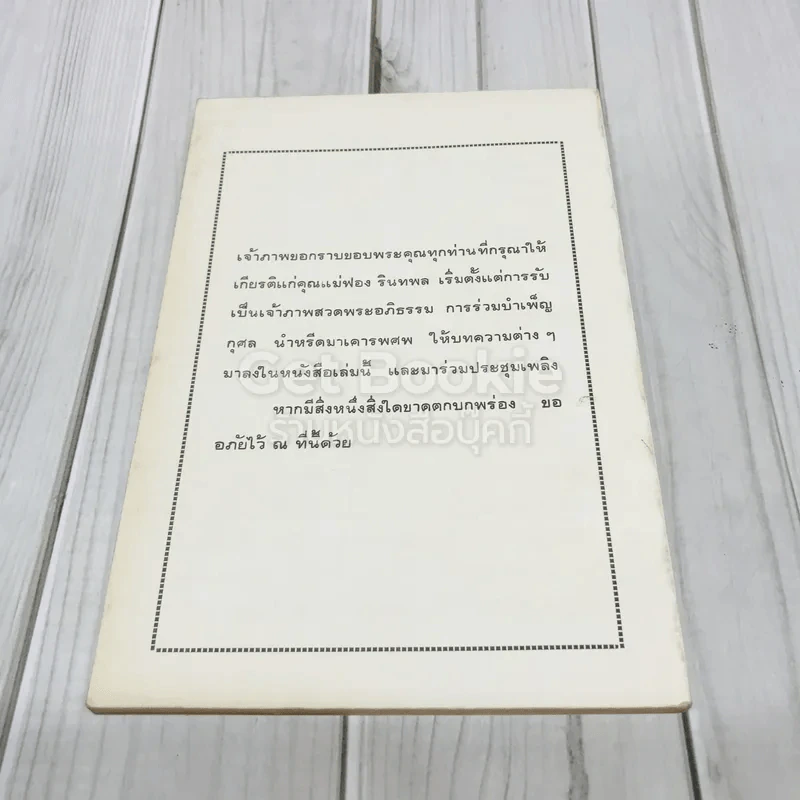 เจ้าภาพขอกราบขอบพระคุณทุกท่านที่กรุณาให้
เกียรติแก่คุณแม่ฟอง รินทพล เริ่มตั้งแต่การรับ
เป็นเจ้าภาพสวดพระอภิธรรม การร่วมบำเพ็ญ
กุศล นำหรีดมาเคารพศพ ให้บทความต่าง ๆ
มาลงในหนังสือเล่มนี้ และมาร่วมประชุมเพลิง
Get Bookie
หากมีสิ่งหนึ่งสิ่งใดขาดตกบกพร่อง ขอ
ร้านหนังสือบุ๊คกี้
อภัยไว้ ณ ที่นี้ด้วย